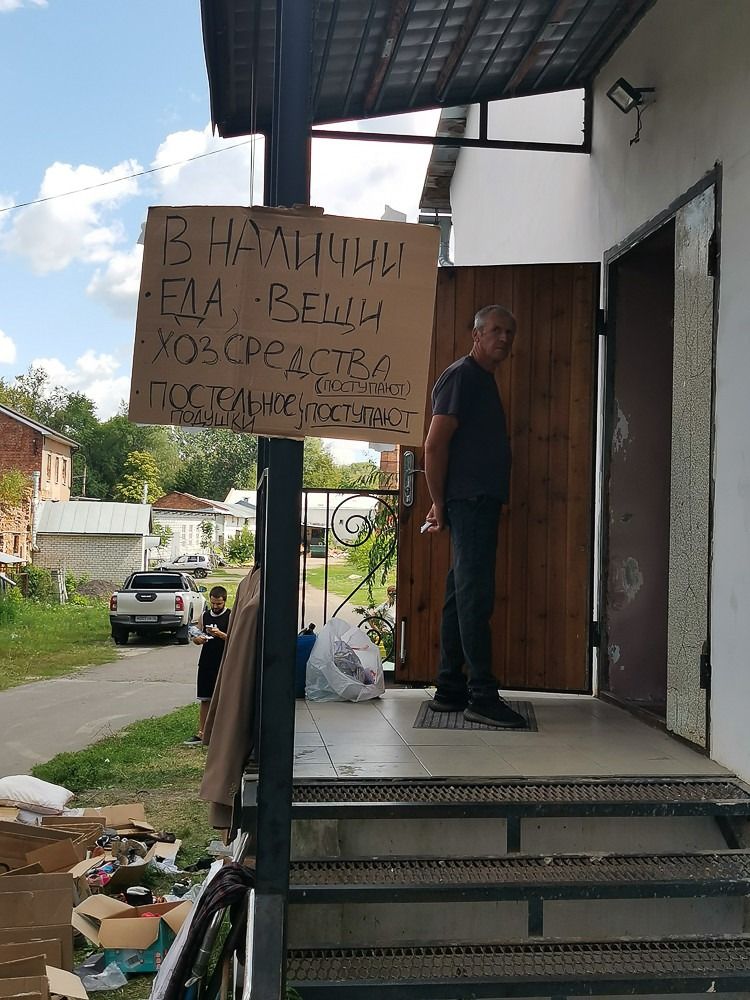 В НАЛИЧИИ
· ЕДА, · ВЕЩИ
· ХОЗСРЕДСТВА
(ПОСТУПАЮТ)
· ПОСТЕЛЬНОЕ, ПОСТУПАЮТ
ПОДУШКИ